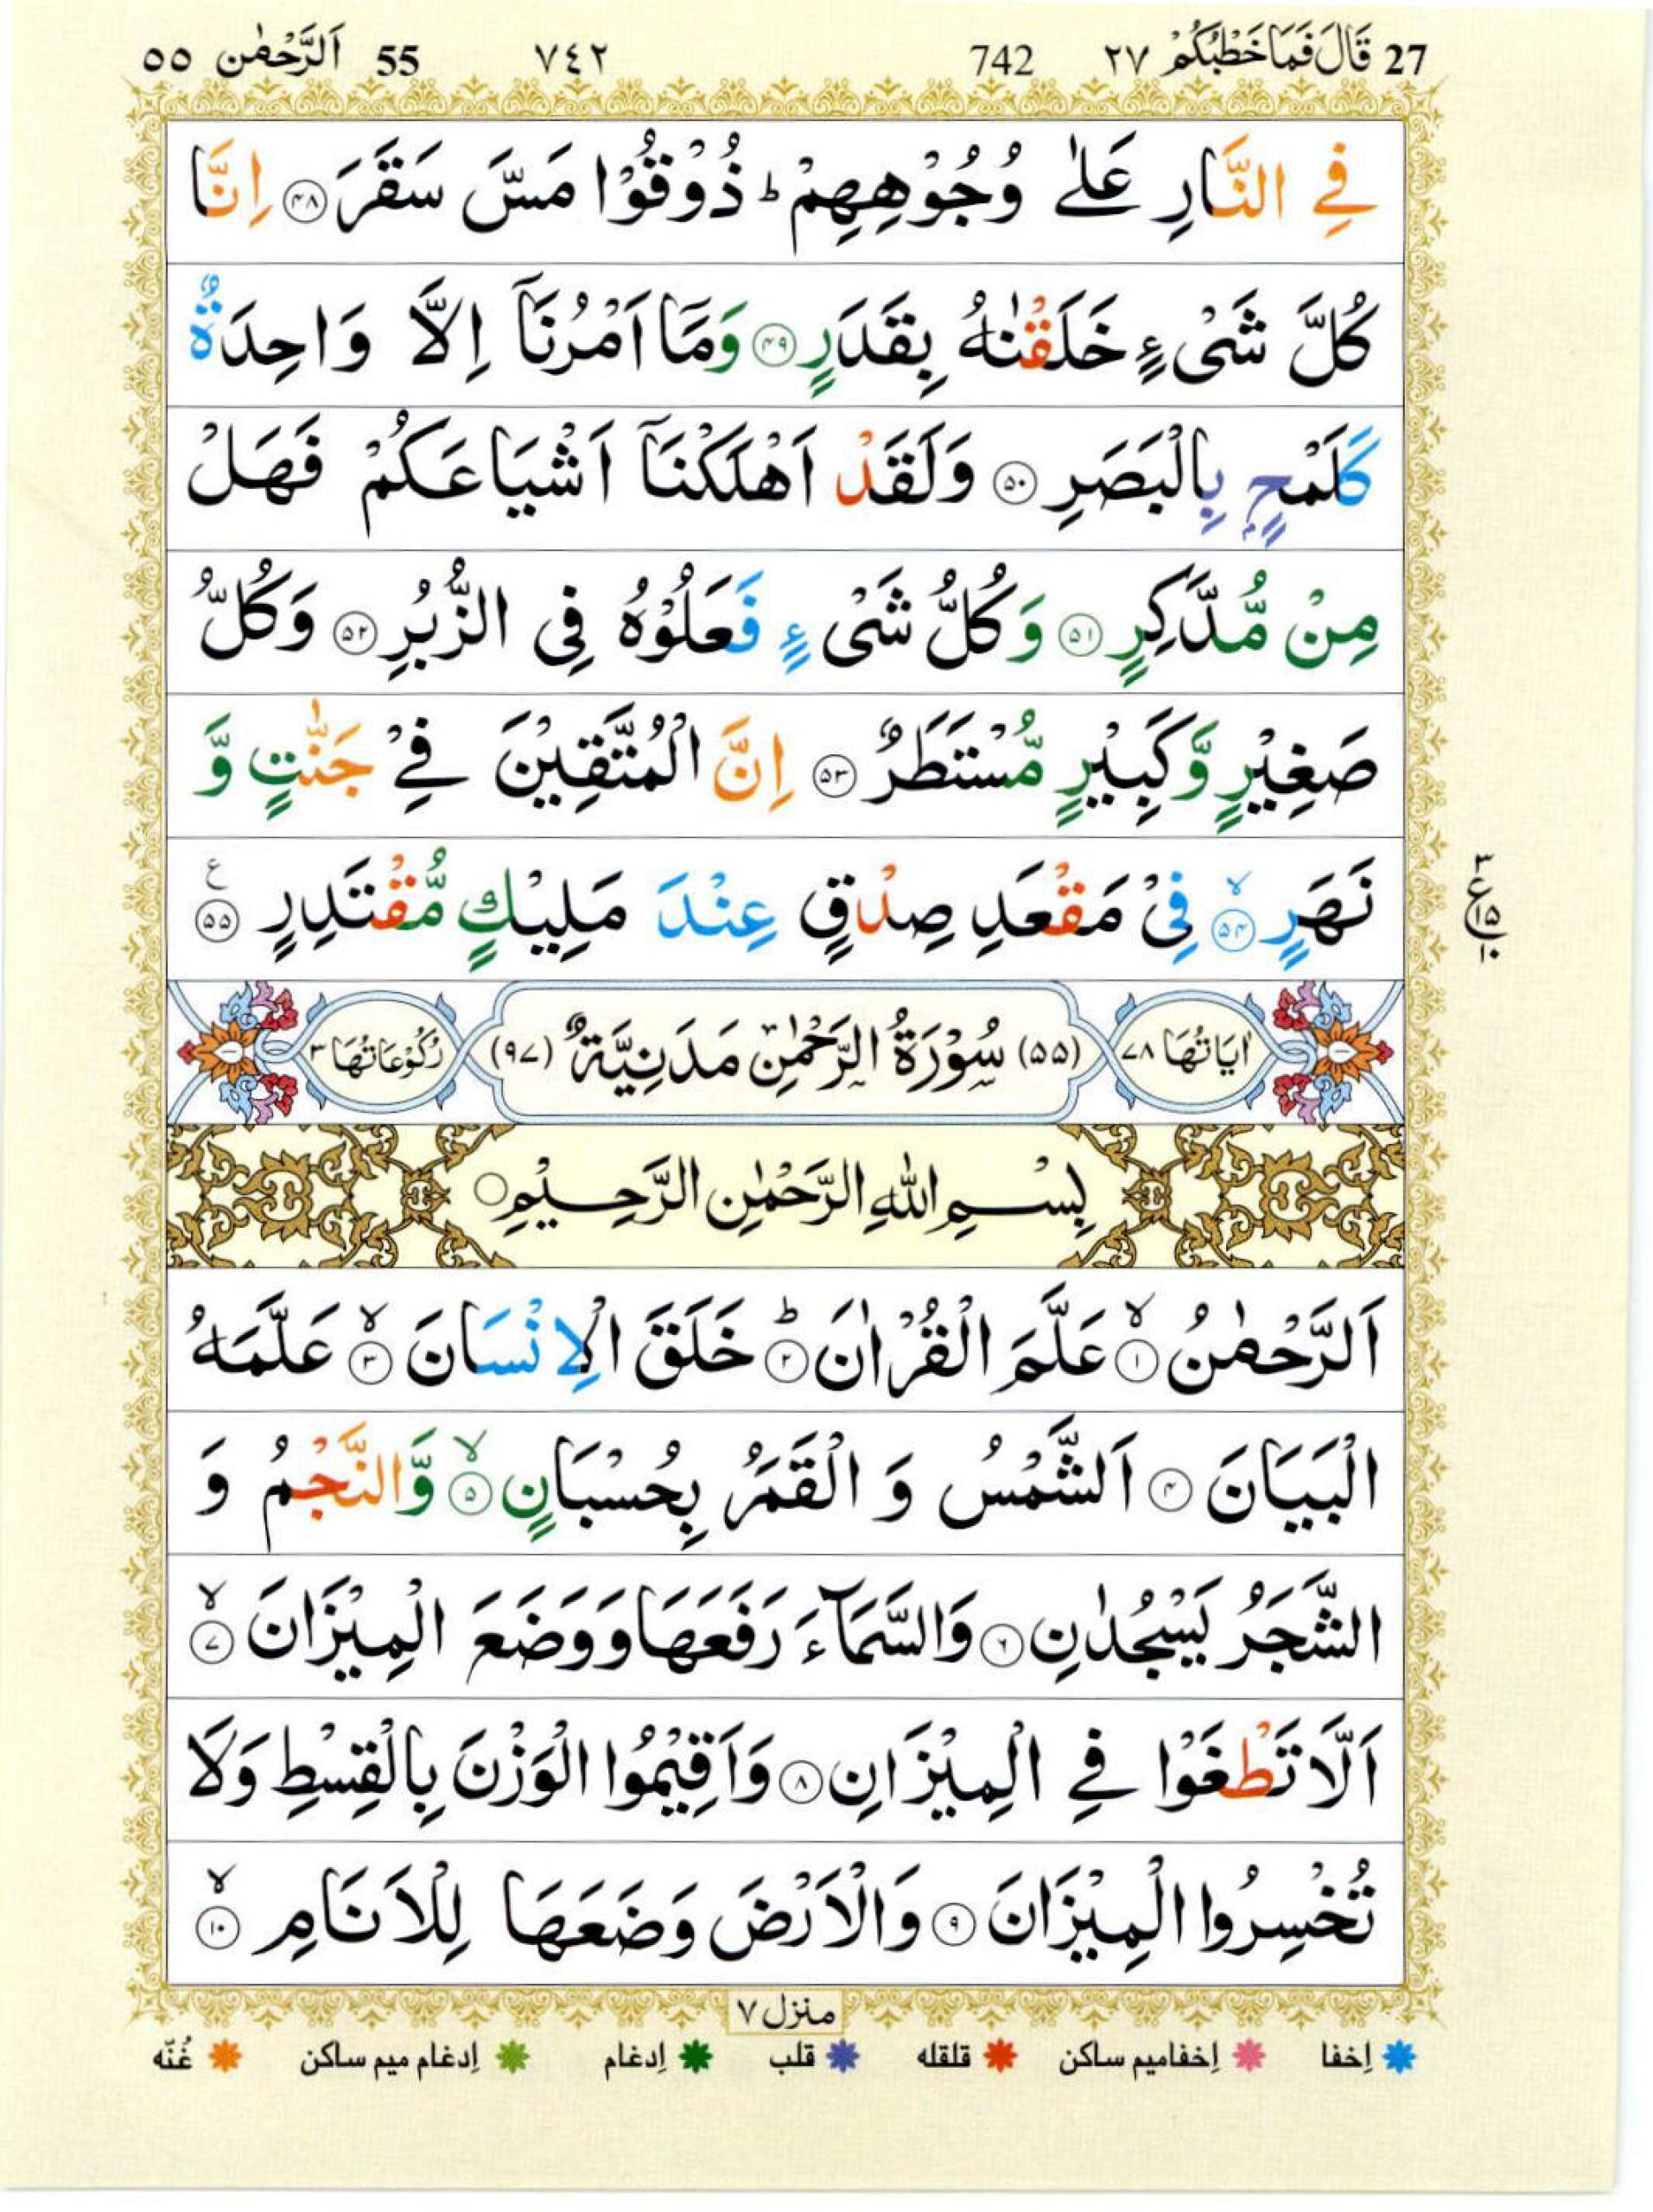 27 قَالَ فَمَا خَطْبُكُمْ ٢٧ 742 ٧٤٢ 55 اَلرَّحْمٰن ٥٥
فِي النَّارِ عَلٰى وُجُوْهِهِمْ ؕ ذُوْقُوْا مَسَّ سَقَرَ ﴿۴۸﴾ اِنَّا
كُلَّ شَىْءٍ خَلَقْنٰهُ بِقَدَرٍ ﴿۴۹﴾ وَمَاۤ اَمْرُنَاۤ اِلَّا وَاحِدَةٌ
كَلَمْحٍۭ بِالْبَصَرِ ﴿۵۰﴾ وَلَقَدْ اَهْلَكْنَاۤ اَشْيَاعَكُمْ فَهَلْ
مِنْ مُّدَّكِرٍ ﴿۵۱﴾ وَكُلُّ شَىْءٍ فَعَلُوْهُ فِى الزُّبُرِ ﴿۵۲﴾ وَكُلُّ
صَغِيْرٍ وَّكَبِيْرٍ مُّسْتَطَرٌ ﴿۵۳﴾ اِنَّ الْمُتَّقِيْنَ فِيْ جَنّٰتٍ وَّ
نَهَرٍ ۙ﴿۵۴﴾ فِيْ مَقْعَدِ صِدْقٍ عِنْدَ مَلِيْكٍ مُّقْتَدِرٍ ﴿۵۵﴾ ع
٣ ع ١٥ ١٠
اٰيَاتُهَا ۷۸ (۵۵) سُوْرَةُ الرَّحْمٰنِ مَدَنِيَّةٌ (۹۷) رُكُوْعَاتُهَا ۳
بِسْمِ اللّٰهِ الرَّحْمٰنِ الرَّحِيْمِ
اَلرَّحْمٰنُ ۙ﴿۱﴾ عَلَّمَ الْقُرْاٰنَ ؕ﴿۲﴾ خَلَقَ الْاِنْسَانَ ۙ﴿۳﴾ عَلَّمَهُ
الْبَيَانَ ﴿۴﴾ اَلشَّمْسُ وَ الْقَمَرُ بِحُسْبَانٍ ۙ﴿۵﴾ وَّالنَّجْمُ وَ
الشَّجَرُ يَسْجُدٰنِ ﴿۶﴾ وَالسَّمَآءَ رَفَعَهَا وَوَضَعَ الْمِيْزَانَ ۙ﴿۷﴾
اَلَّا تَطْغَوْا فِي الْمِيْزَانِ ﴿۸﴾ وَاَقِيْمُوا الْوَزْنَ بِالْقِسْطِ وَلَا
تُخْسِرُوا الْمِيْزَانَ ﴿۹﴾ وَالْاَرْضَ وَضَعَهَا لِلْاَنَامِ ۙ﴿۱۰﴾
منزل ٧
إخفا إخفاميم ساكن قلقله قلب إدغام إدغام ميم ساكن غُنّه